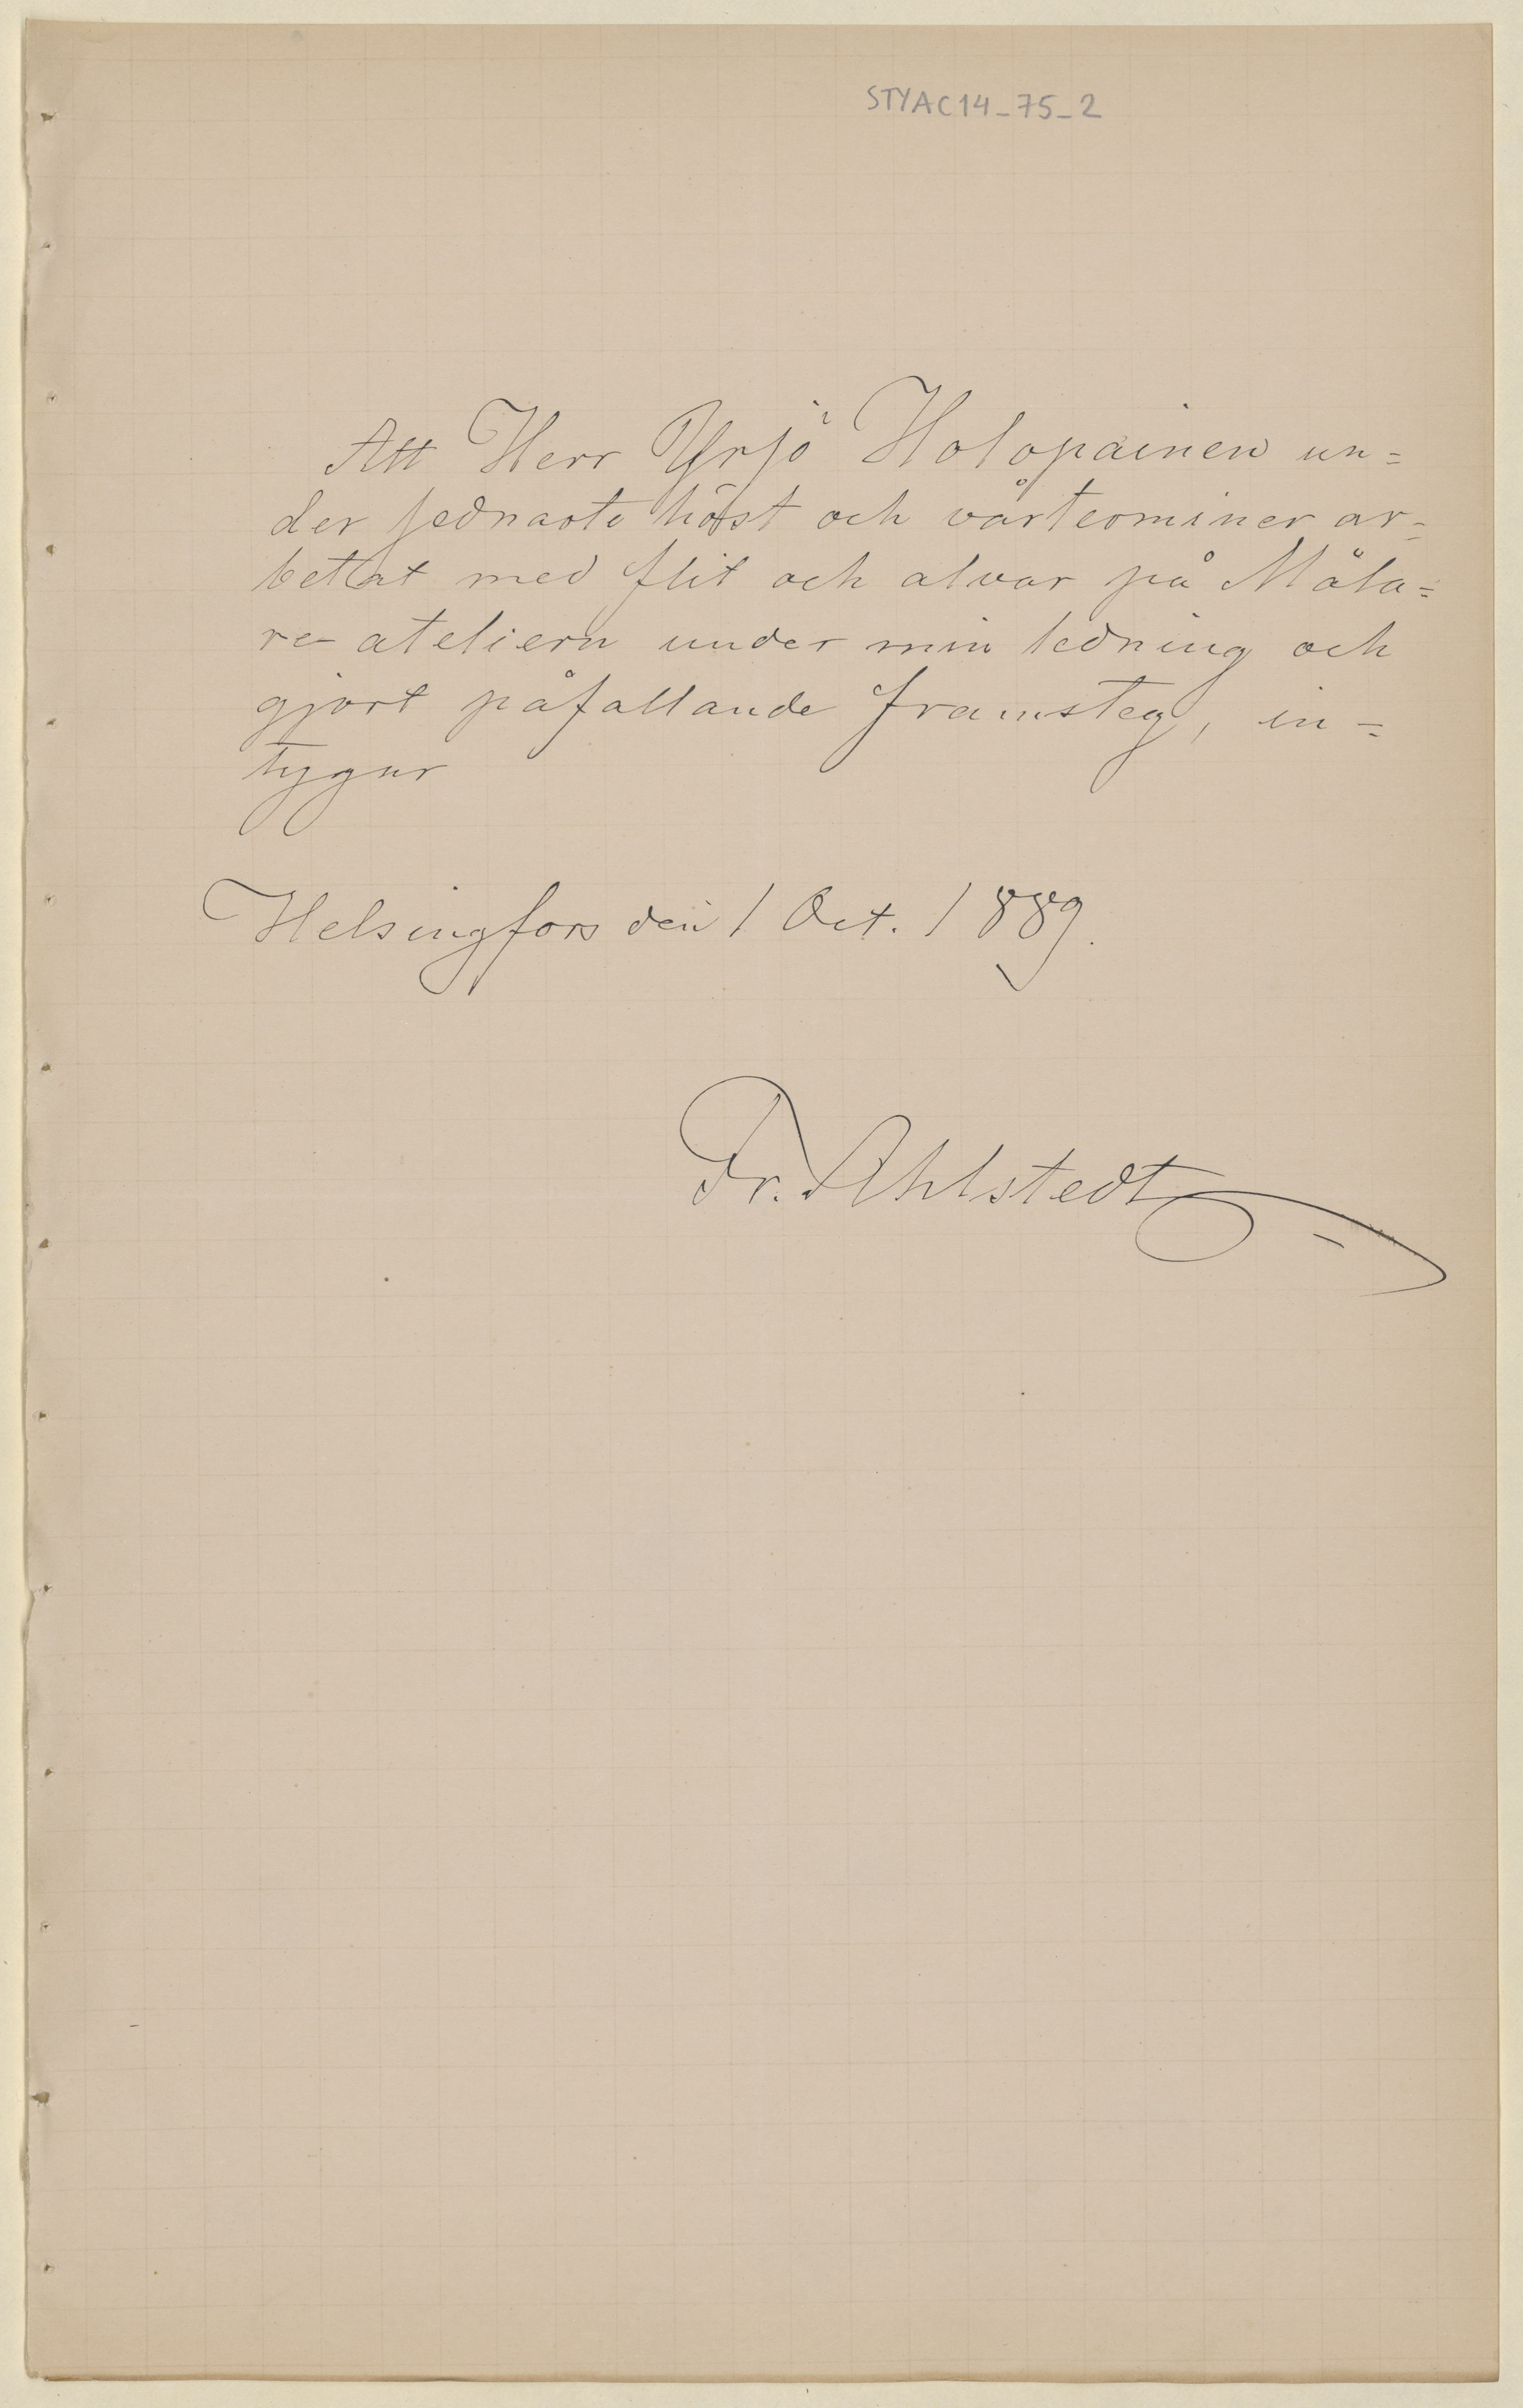 STYAC14_75_2
Att Herr Yrjö Holopainen un=
der sednaste höst och vårterminer ar=
betat med flit och alvar på Måla=
re ateliern under min ledning och
gjort påfallande framsteg, in=
tygar
Helsingfors den 1 Oct. 1889.
Fr. Ahlstedt